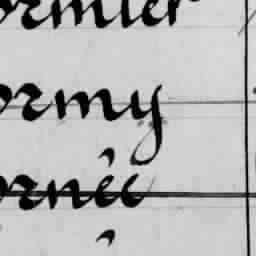 ormier
ormy
ornée